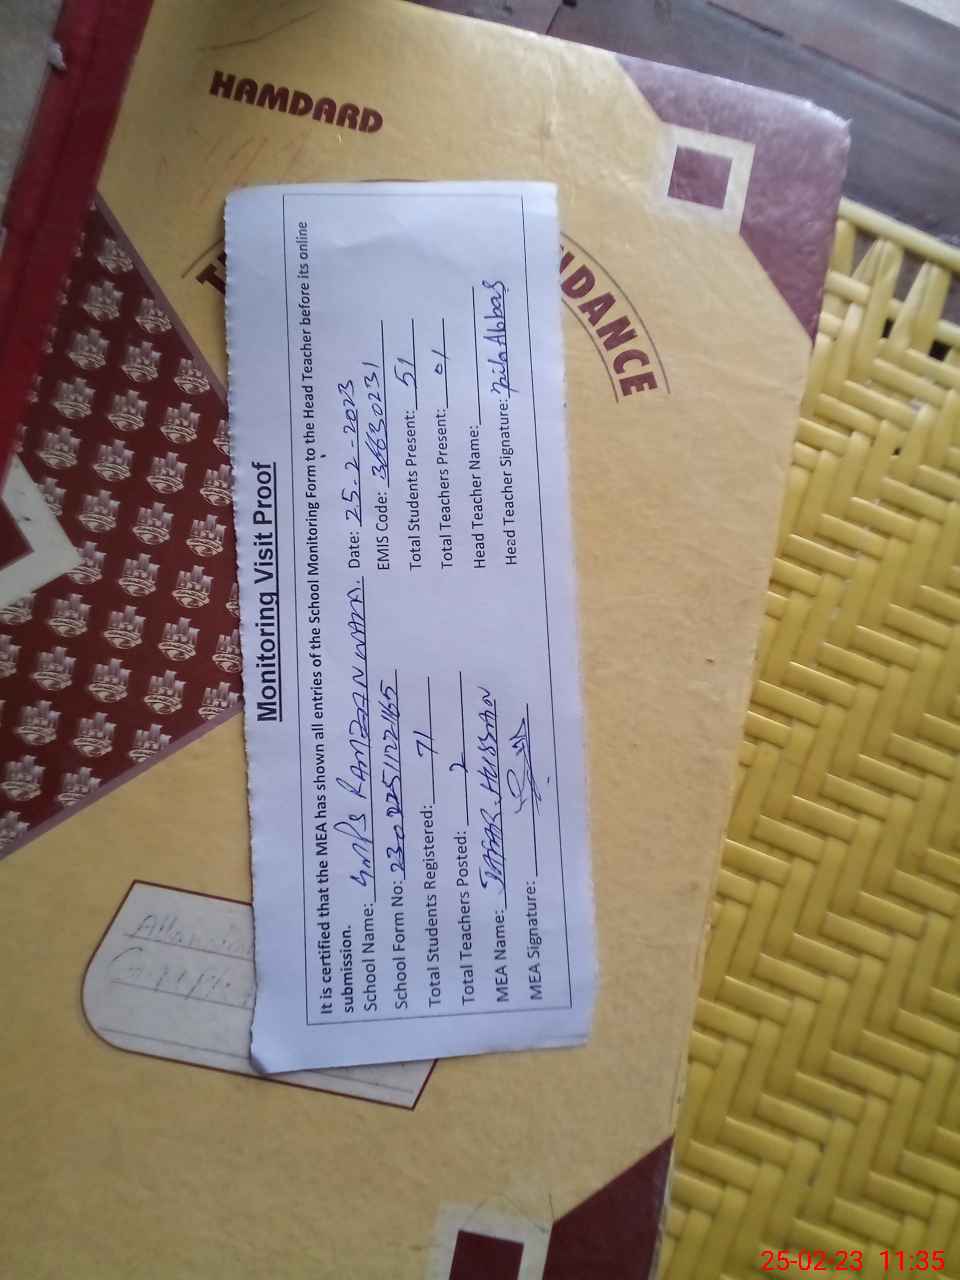 HAMDARD
Monitoring Visit Proof
It is certified that the MEA has shown all entries of the School Monitoring Form to the Head Teacher before its online
submission.
School Name: GMPS RAMZAN WALA. Date: 25-2-2023
School Form No: EMIS Code:
Total Students Registered: 71 Total Students Present: 51
Total Teachers Posted: 2 Total Teachers Present: 01
MEA Name: Head Teacher Name:
MEA Signature: Head Teacher Signature: Abbas
NDANCE
25-02-23 11:35